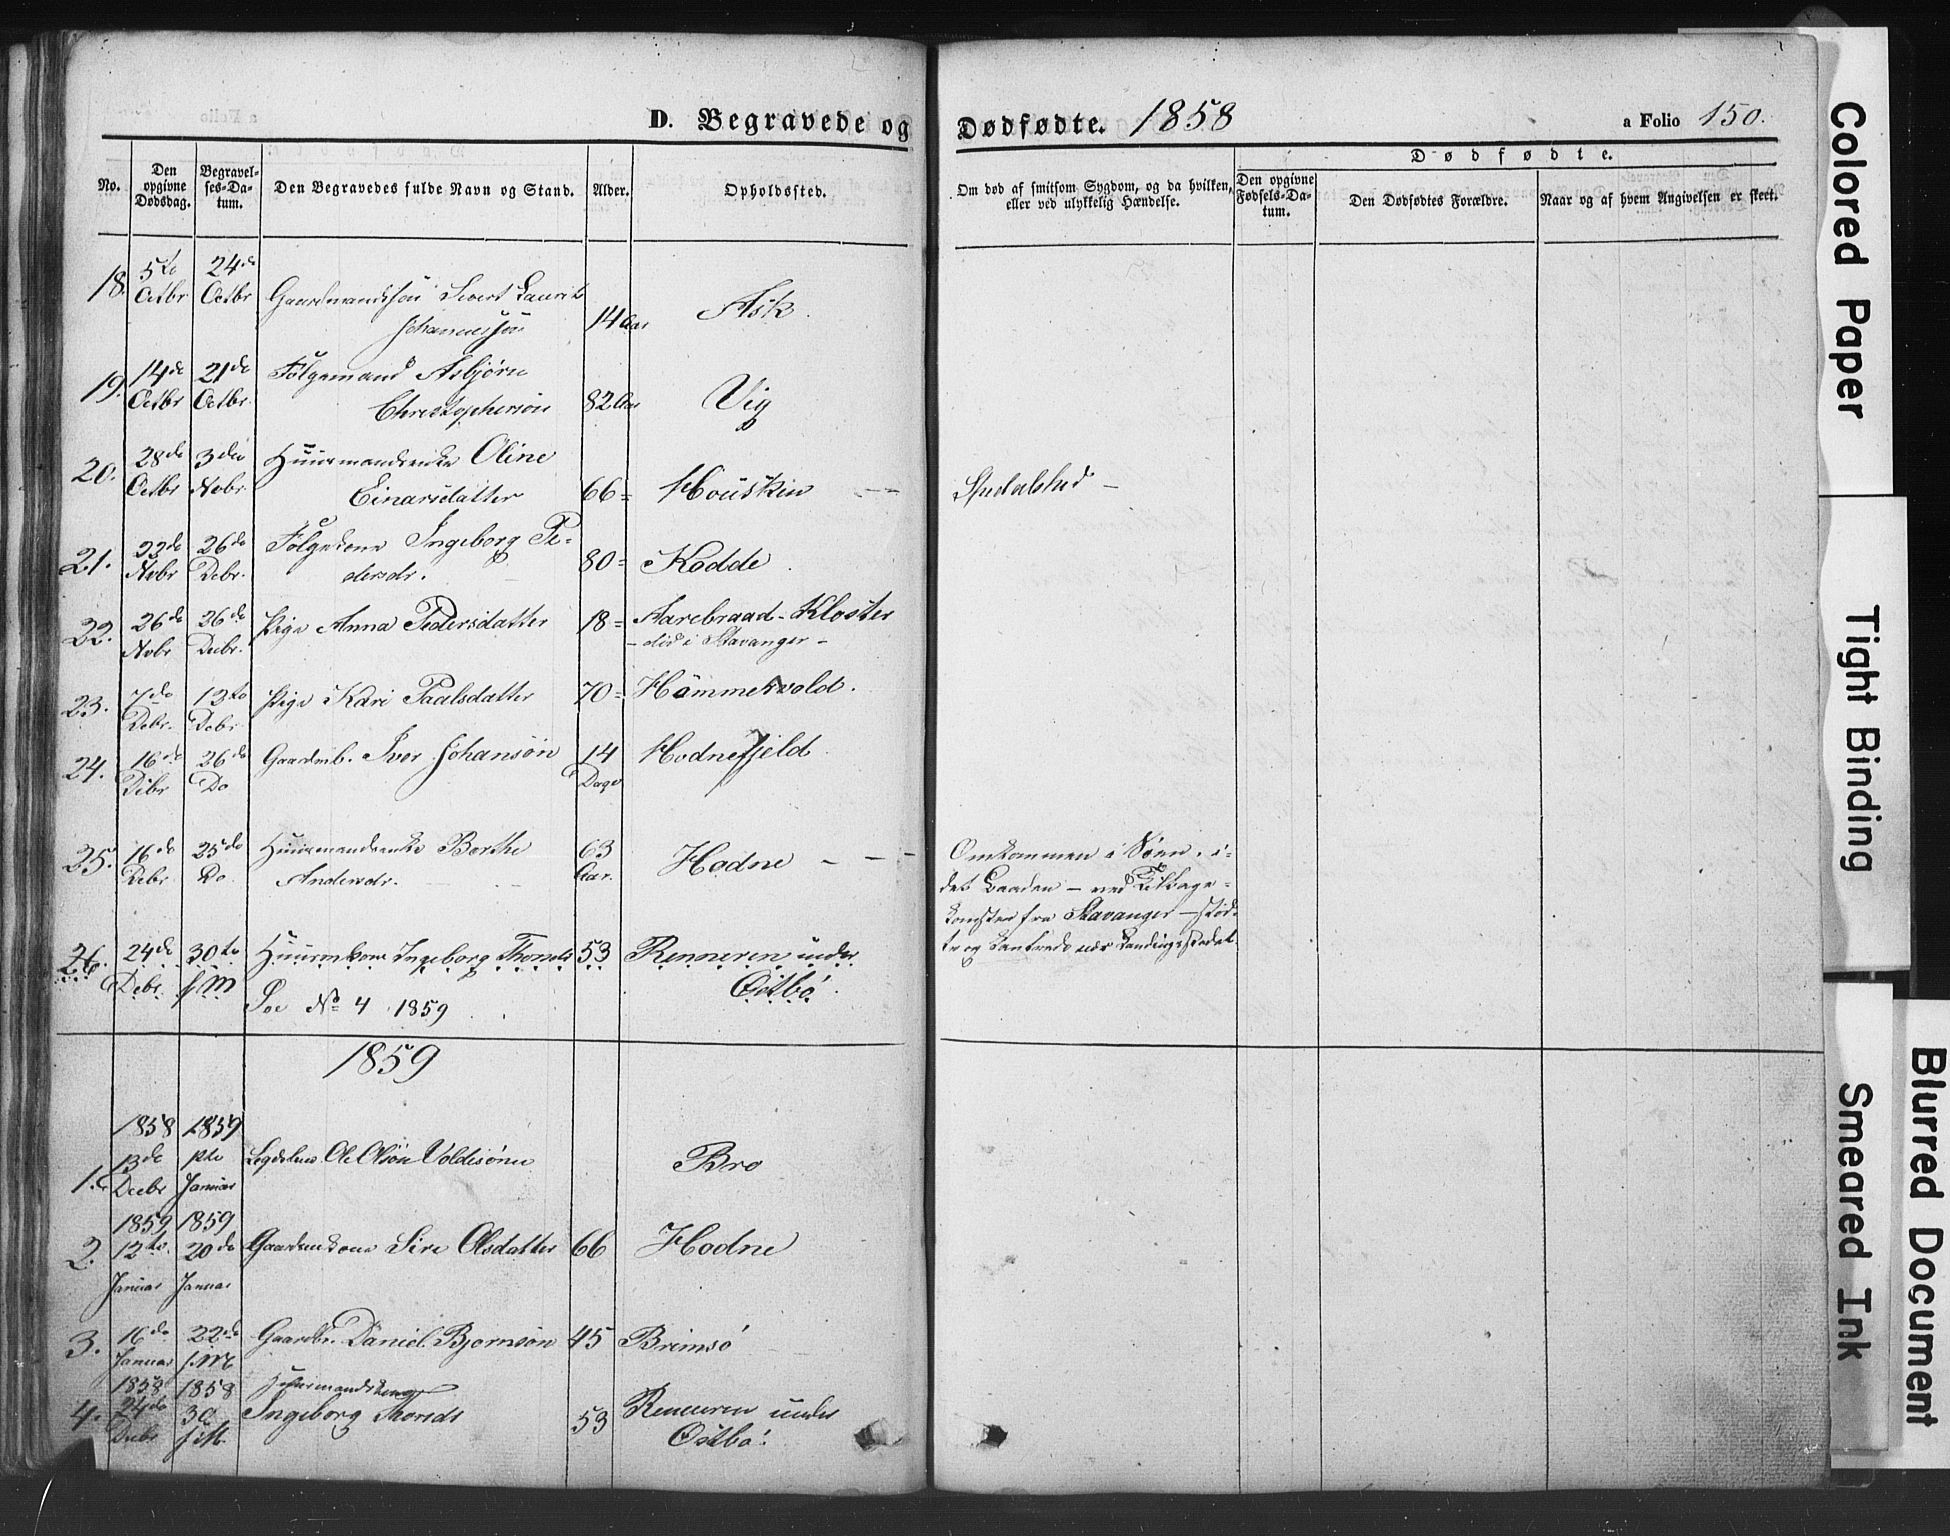 D. Begravede og Dødfødte. 1858
a Folio 150.
Dødfødte.
No.
Den opgivne Dødsdag.
Begravelses-Datum.
Den Begravedes fulde Navn og Stand.
Alder.
Opholdssted.
Om død af smitsom Sygdom, og da hvilken, eller ved ulykkelig Hændelse.
Den opgivne Fødsels-Datum.
Den Dødfødtes Forældre.
Naar og af hvem Angivelsen er skeet.
18. 5te Octbr 24de Octbr Gaardmandssøn Sivert Laurits
Johannessøn 14 Aar Ask.
19. 14de Octbr 21de Octbr. Følgemand Asbjørn
Christophersøn 82 Aar Vig
20. 28de Octbr 3die Novbr. Huusmandsenke Oline
Einarsdatter 66 = Housken Spedalskhed -
21. 22de Novbr 26de Debr. Følgekone Ingeborg Pe-
dersdr. 80 = Kodde
22. 26de Novbr 26de Decbr. Pige Anna Pedersdatter 18 = Aarebraad-Kloster
- død i Stavanger -
23. 7de Debr. 13te Debr Pige Kari Paalsdatter 70 = Hammersvold.
24. 16de Debr 26de Do Gaardmb. Iver Johansøn 14 Dage Hodnefjeld
25. 16de Debr 25de Do. Huusmandsenke Berthe
Andersdr. 63 Aar. Hodne - - -
Omkommen i Søen, i-
det Baaden - ved Tilbage-
komsten fra Stavanger - stød-
te og kantrede nær Landingsstedet.
26. 24de Debr. 30te f.M Huusmkone Ingeborg Thorsdr 53 Renneren under
Østbø.
See No 4 1859
1859
1. 1858 13de Decbr 1859 Januar Legdslem Ole Olsøn Voldesønn Bro
2. 1859 12te Januar 1859 20de Januar Gaardmkone Siri Olsdatter 66 Hodne
3. 16de Januar 22de Gaardbr. Daniel Bjørnsøn 45 Brimsø
4. 1858 24de Decbr 1858 30 f.M. Huusmandskone
Ingeborg Thorsdr 53 Renneren under
Østbø.
Colored Paper
Tight Binding
Blurred Document
Smeared Ink